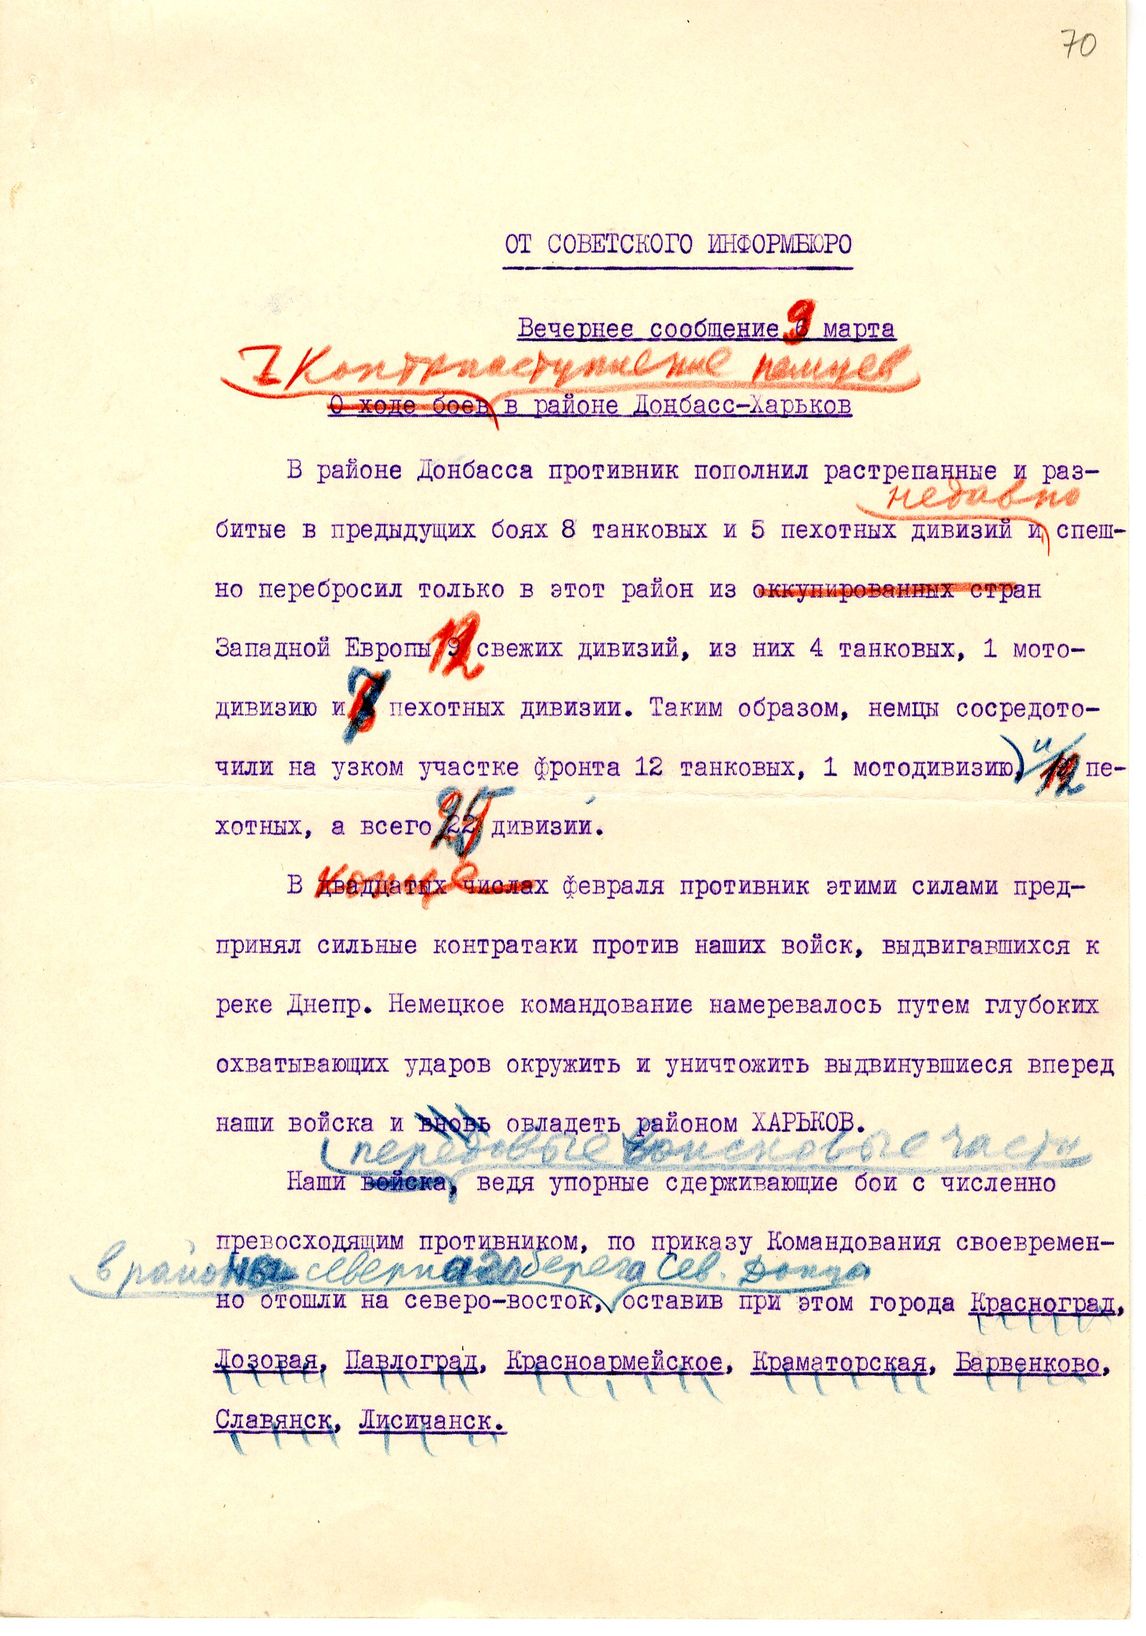 70
ОТ СОВЕТСКОГО ИНФОРМБЮРО
Вечернее сообщение 9 марта
Контрнаступление немцев
О ходе боев в районе Донбасс-Харьков
В районе Донбасса противник пополнил растрепанные и раз-
недавно
битые в предыдущих боях 8 танковых и 5 пехотных дивизий и спеш-
но перебросил только в этот район из оккупированных стран
Западной Европы 12 свежих дивизий, из них 4 танковых, 1 мото-
дивизию и 7 пехотных дивизии. Таким образом, немцы сосредото-
чили на узком участке фронта 12 танковых, 1 мотодивизию и 12 пе-
хотных, а всего 25 дивизии.
конце
В двадцатых числах февраля противник этими силами пред-
принял сильные контратаки против наших войск, выдвигавшихся к
реке Днепр. Немецкое командование намеревалось путем глубоких
охватывающих ударов окружить и уничтожить выдвинувшиеся вперед
наши войска и вновь овладеть районом ХАРЬКОВ.
передовые войсковые части
Наши войска, ведя упорные сдерживающие бои с численно
превосходящим противником, по приказу Командования своевремен-
в районы северного берега Сев. Донца
но отошли на северо-восток, оставив при этом города Красноград,
Лозовая, Павлоград, Красноармейское, Краматорская, Барвенково,
Славянск, Лисичанск.